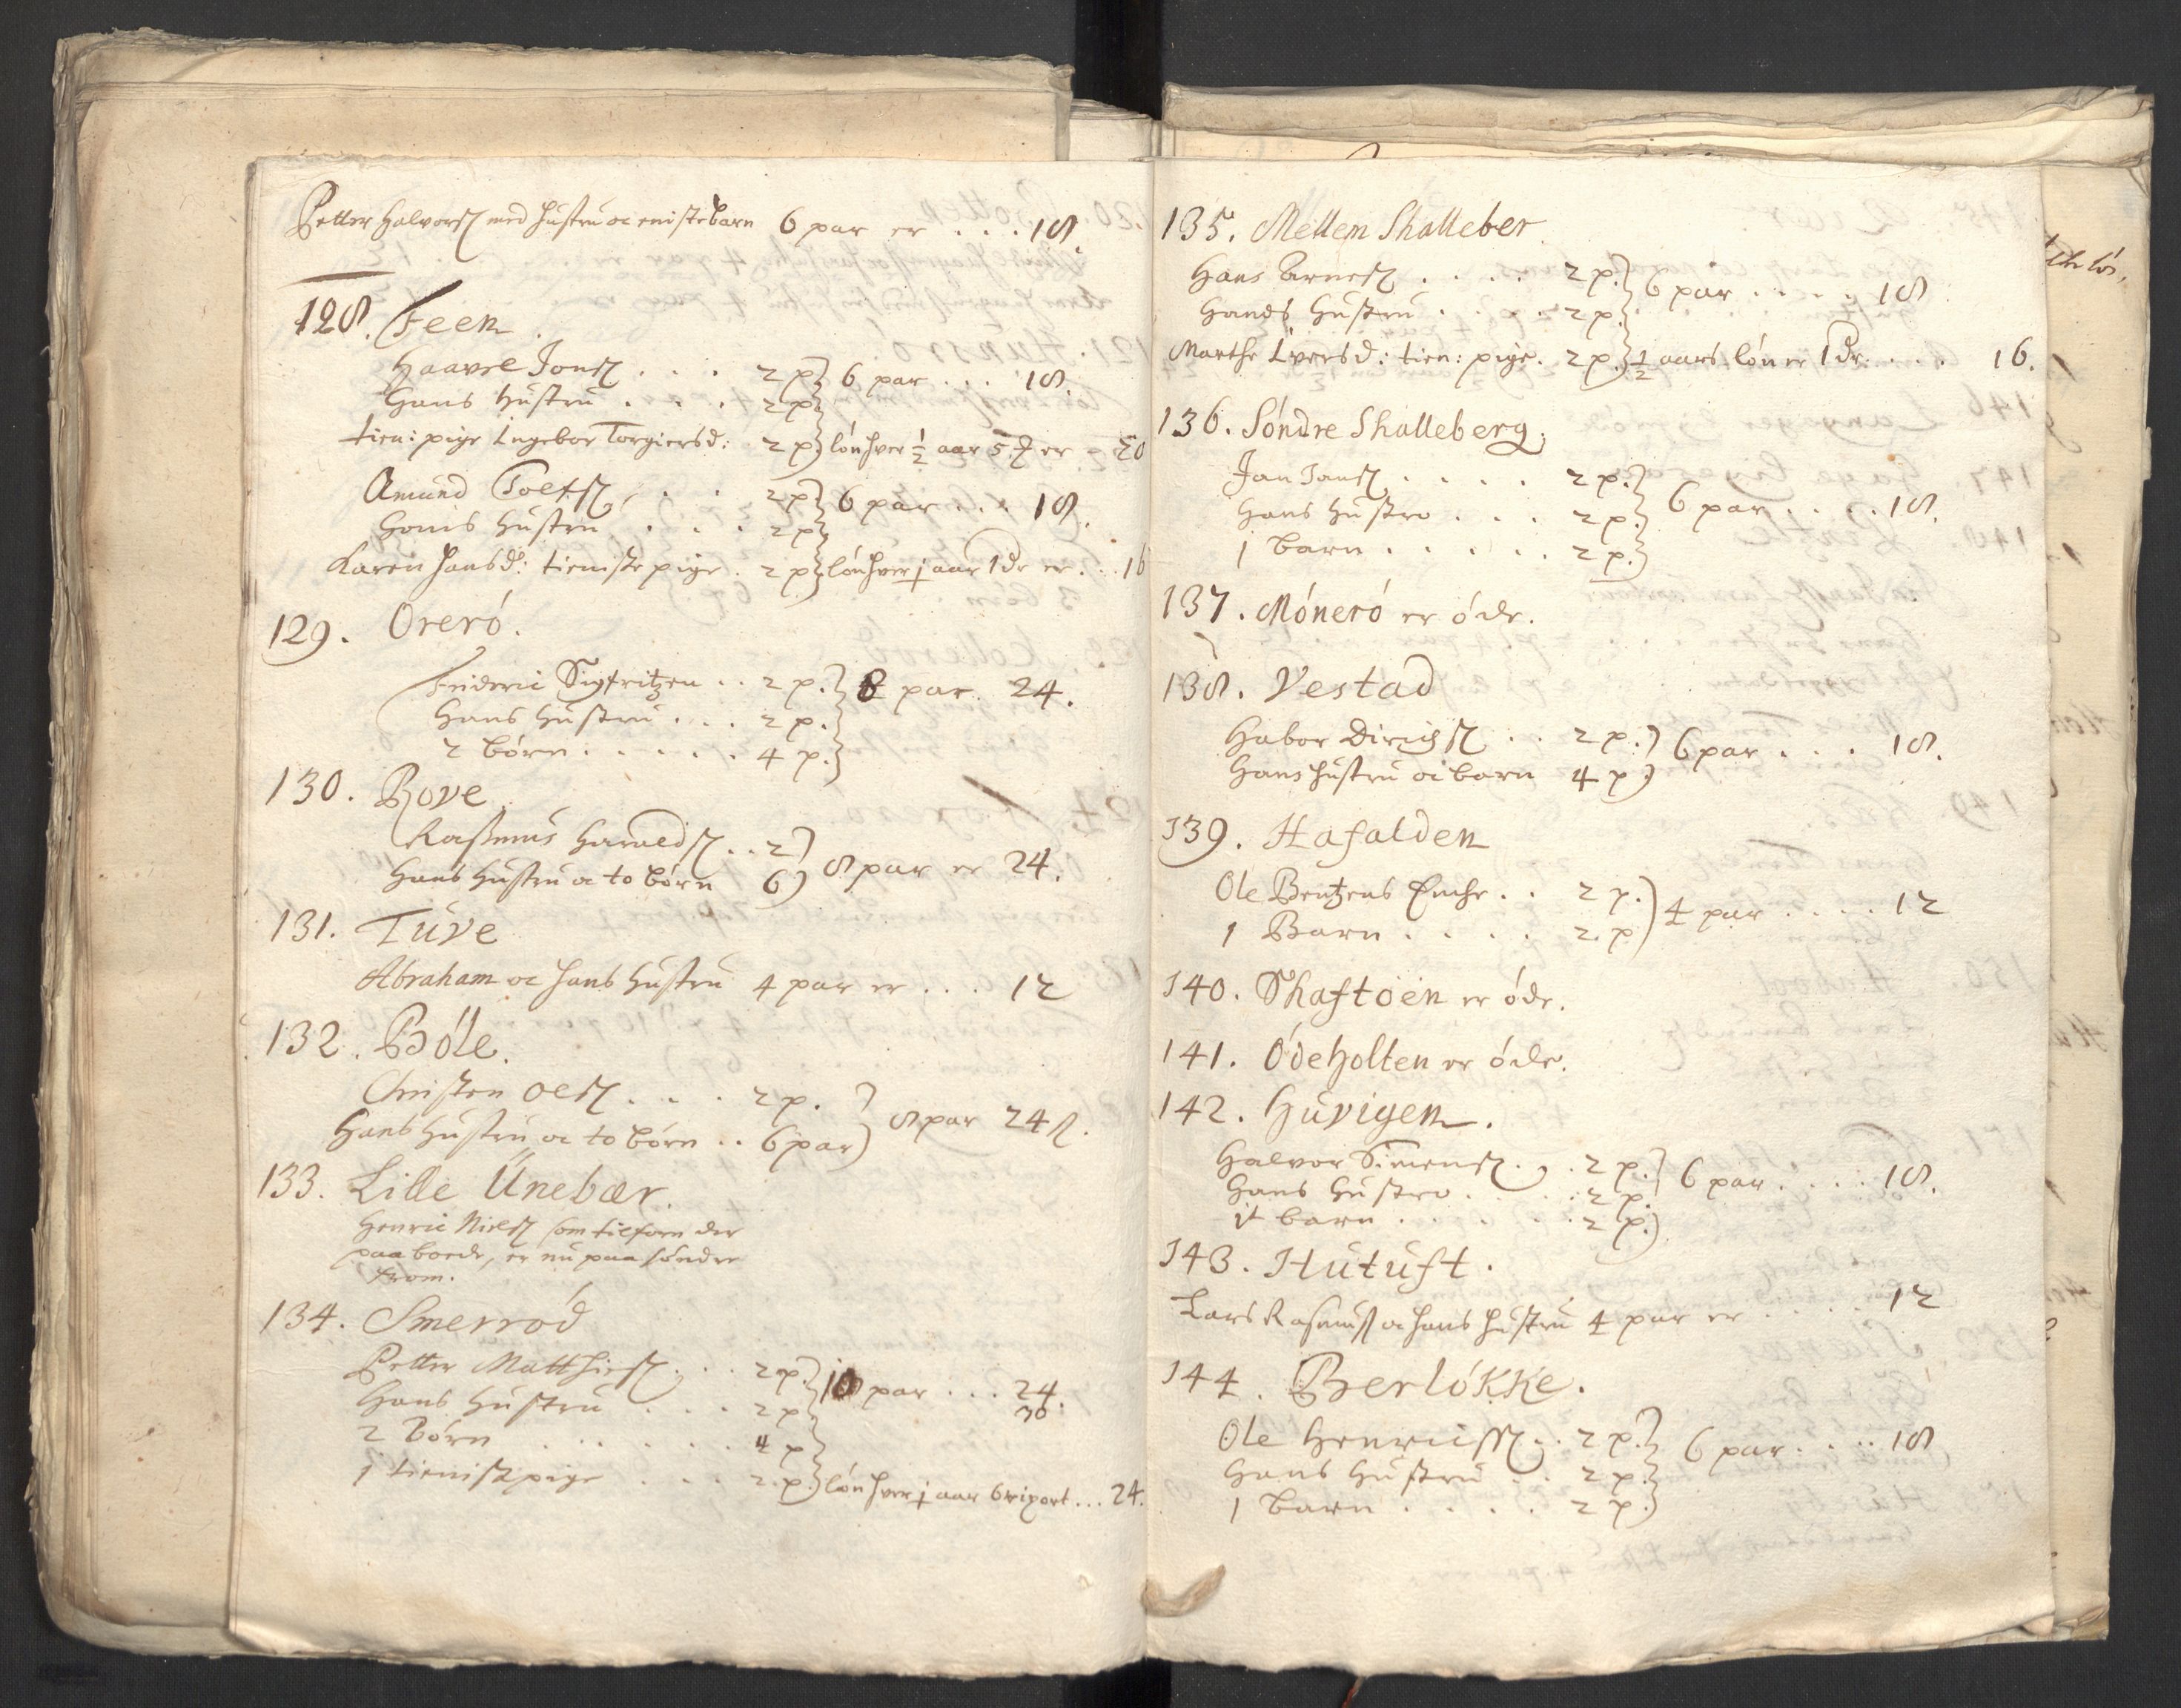 Petter Halvors med hustru oc eniste barn 6 par er . . . 18.
128. Feen
Haavel Jons . . . 2 p 6 par . . . 18.
Hans hustru . . . 2 p
tien: pige Ingebor Torgiersd: 2 p lón hver ½ aar 5 er - 20
Amund Toels . . . 2 p 6 par . . . 18.
Hans hustru . . . 2 p
Karen Hansd: tieniste pige . 2 p lón hver ½ aar 1 dr er . . 16
129. Oreró.
Frideric Sigfritzen . . 2 p. 8 par. 24.
Hans hustru . . . 2 p.
2 börn . . . . . 4 p.
130. Bove
Rasmus Haralds . . 2
Hans hustru oc to börn 6 8 par er 24.
131. Tüve
Abraham oc hans hustru 4 par er . . . 12
132. Bóle.
Christen Oels . . . 2 p.
Hans hustru oc to börn . . 6 par 8 par 24 ß.
133. Lille Ünebær.
Henric Niels som tilforn der
paa boede, er nu paa söndre
from.
134. Smerród
Petter Matthies . . 2 p. 10 par . . . 24.
Hans hustru . . . 2 p 30
2 Börn . . . . . . 4 p
1 tienistpige . . . 2 p. lón hver ½ aar 6 riport . . . 24.
135. Mellem Skalleber
Hans Arnes . . . . 2 p. 6 par . . . . 18
Hands Hustru . . . . 2 p.
Marthe Iversd: tien: pige. 2 p. ½ aars lón er 1 dr. . . . 16.
136. Söndre Skalleberg.
Jan Jans . . . . . 2 p. 6 par . . . . 18.
Hans Hustro . . . 2 p.
1 barn . . . . . . 2 p.
137. Móneró er óde.
138. Vestad
Habor Dirichs . . 2 p. 6 par . . . 18.
Hans hustru oc barn 4 p.
139. Hafalden
Ole Bentzens Encke . . 2 p. 4 par . . . . 12
1 Barn . . . . 2. p
140. Skaftoen er óde.
141. Ódeholten er óde.
142. Hüvigen.
Halvor Simens . . 2 p. 6 par . . . . 18.
Hans Hustro . . . . 2 p.
it barn . . . . . . 2 p.
143. Hütüft.
Lars Rasmuss oc hans hustru 4 par er . . . . 12
144. Berlókke.
Ole Henrics . . 2 p. 6 par . . . . 18
Hans Hustru . . 2 p.
1 barn . . . . 2 p.